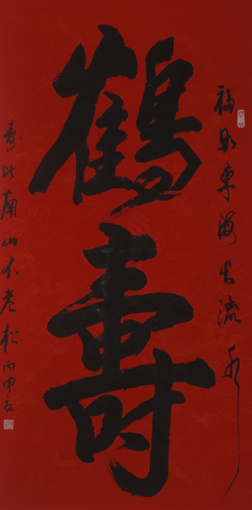 福如東海長流水
鶴壽
壽比南山不老松 丙申夏